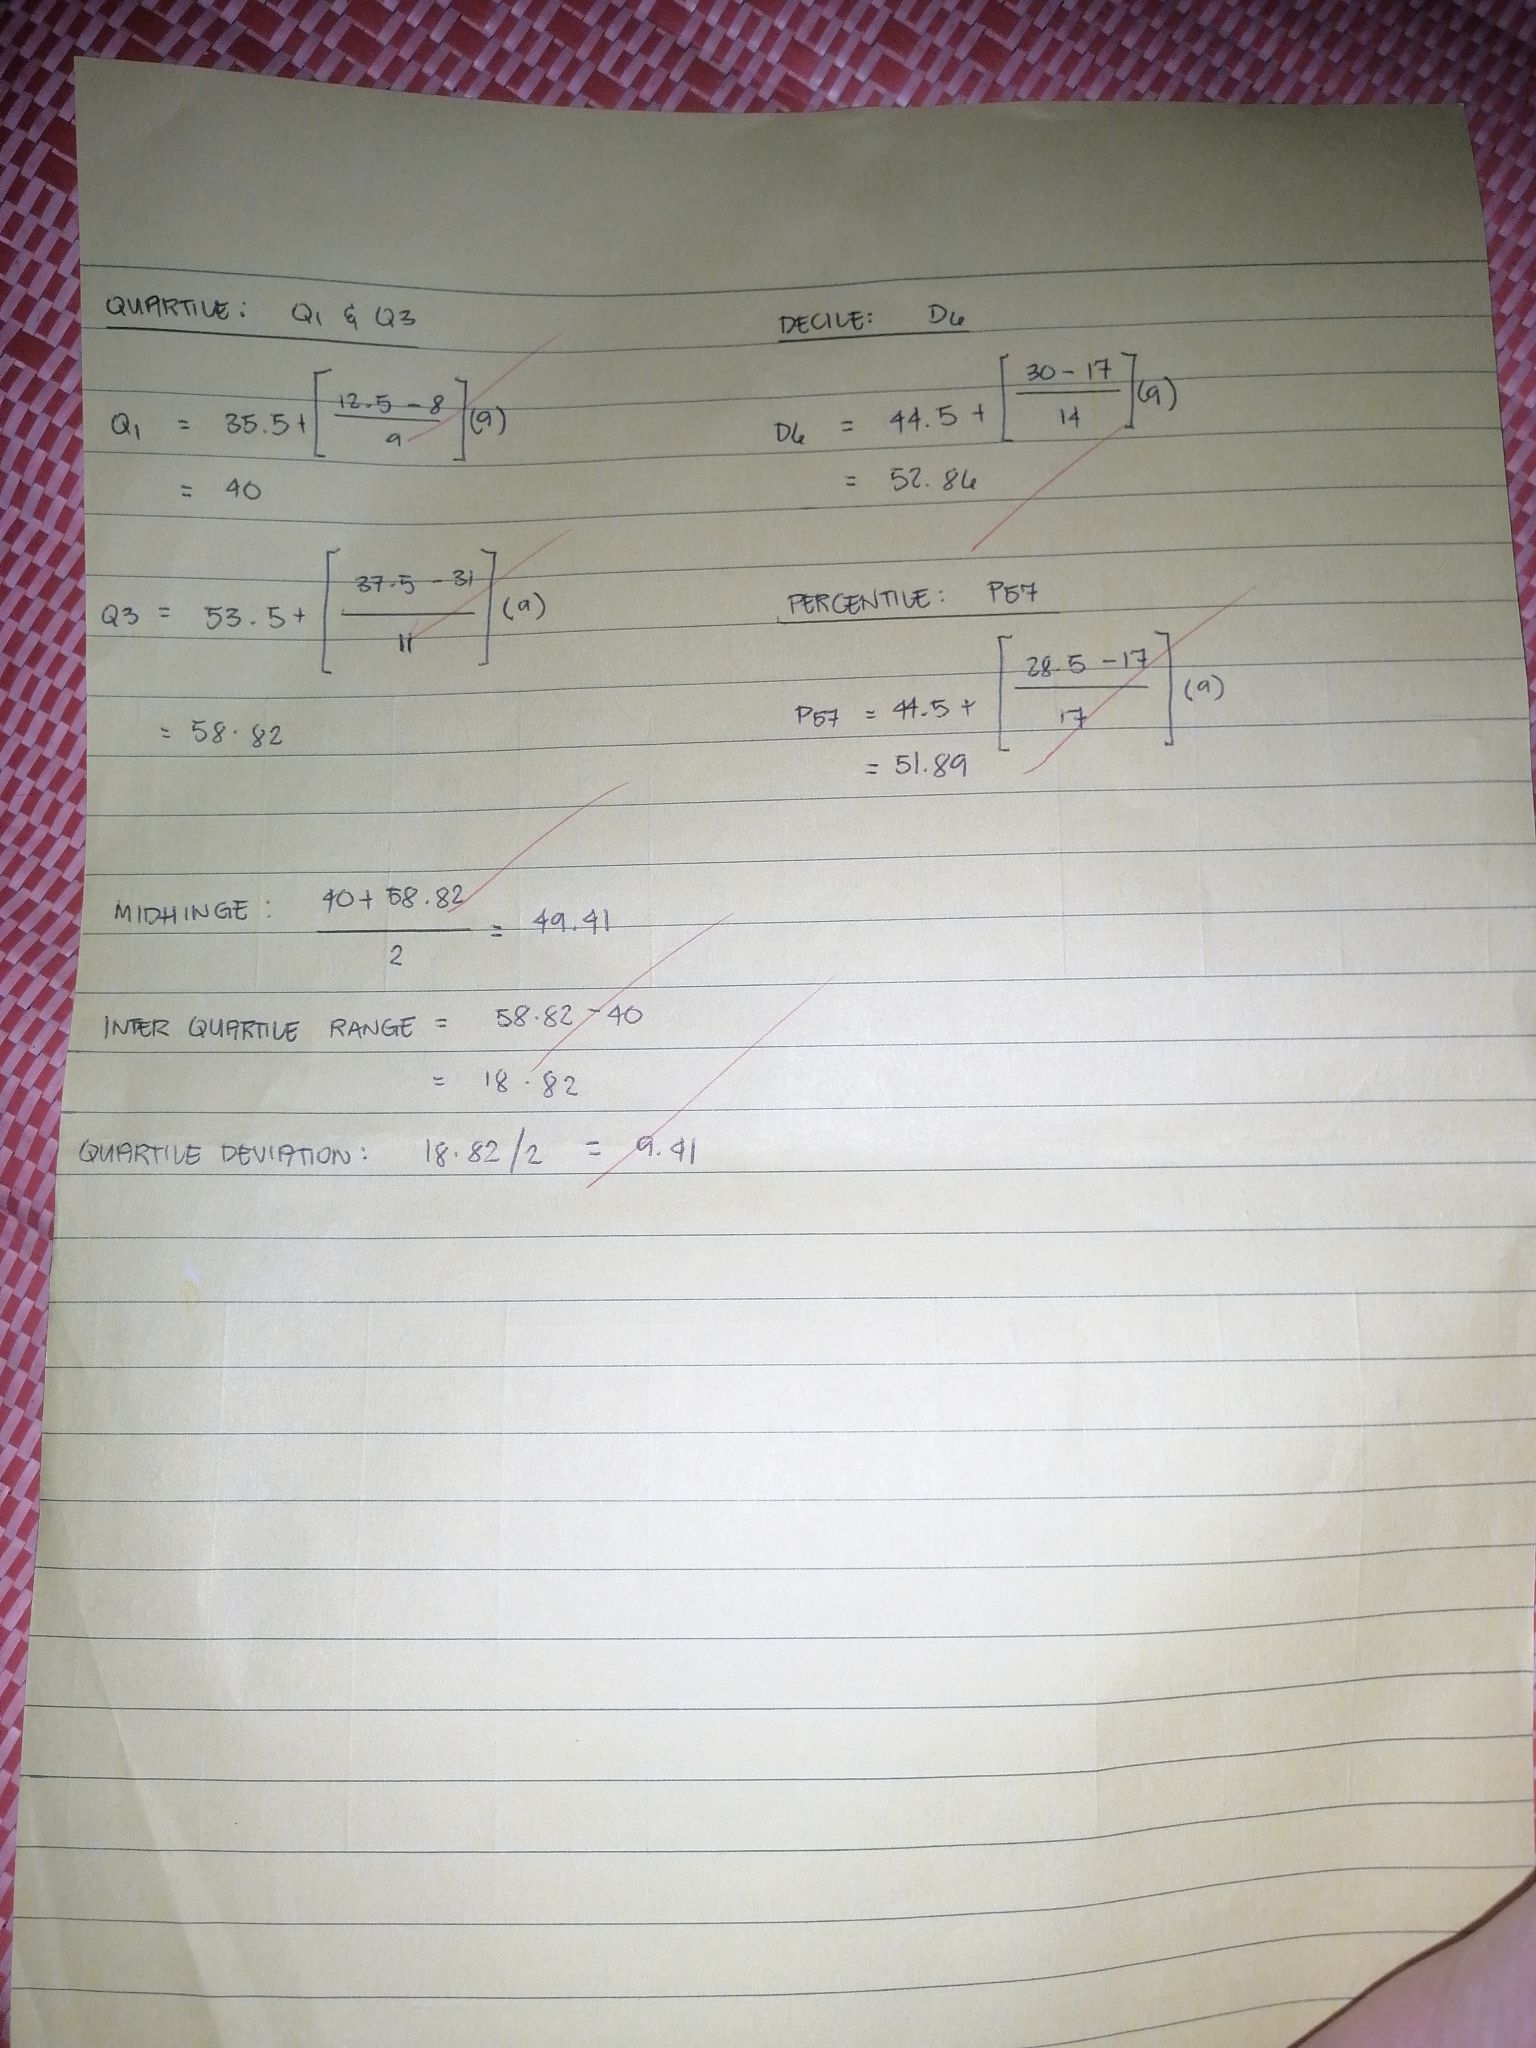 QUARTILE: Q1 & Q3
Q1 = 35.5 + [ 12.5 - 8 / 9 ] (9)
= 40
Q3 = 53.5 + [ 37.5 - 31 / 11 ] (9)
= 58.82
DECILE: D6
D6 = 44.5 + [ 30 - 17 / 14 ] (9)
= 52.86
PERCENTILE: P57
P57 = 44.5 + [ 28.5 - 17 / 17 ] (9)
= 51.89
MIDHINGE: 40 + 58.82 / 2 = 49.41
INTER QUARTILE RANGE = 58.82 - 40
= 18.82
QUARTILE DEVIATION: 18.82/2 = 9.41